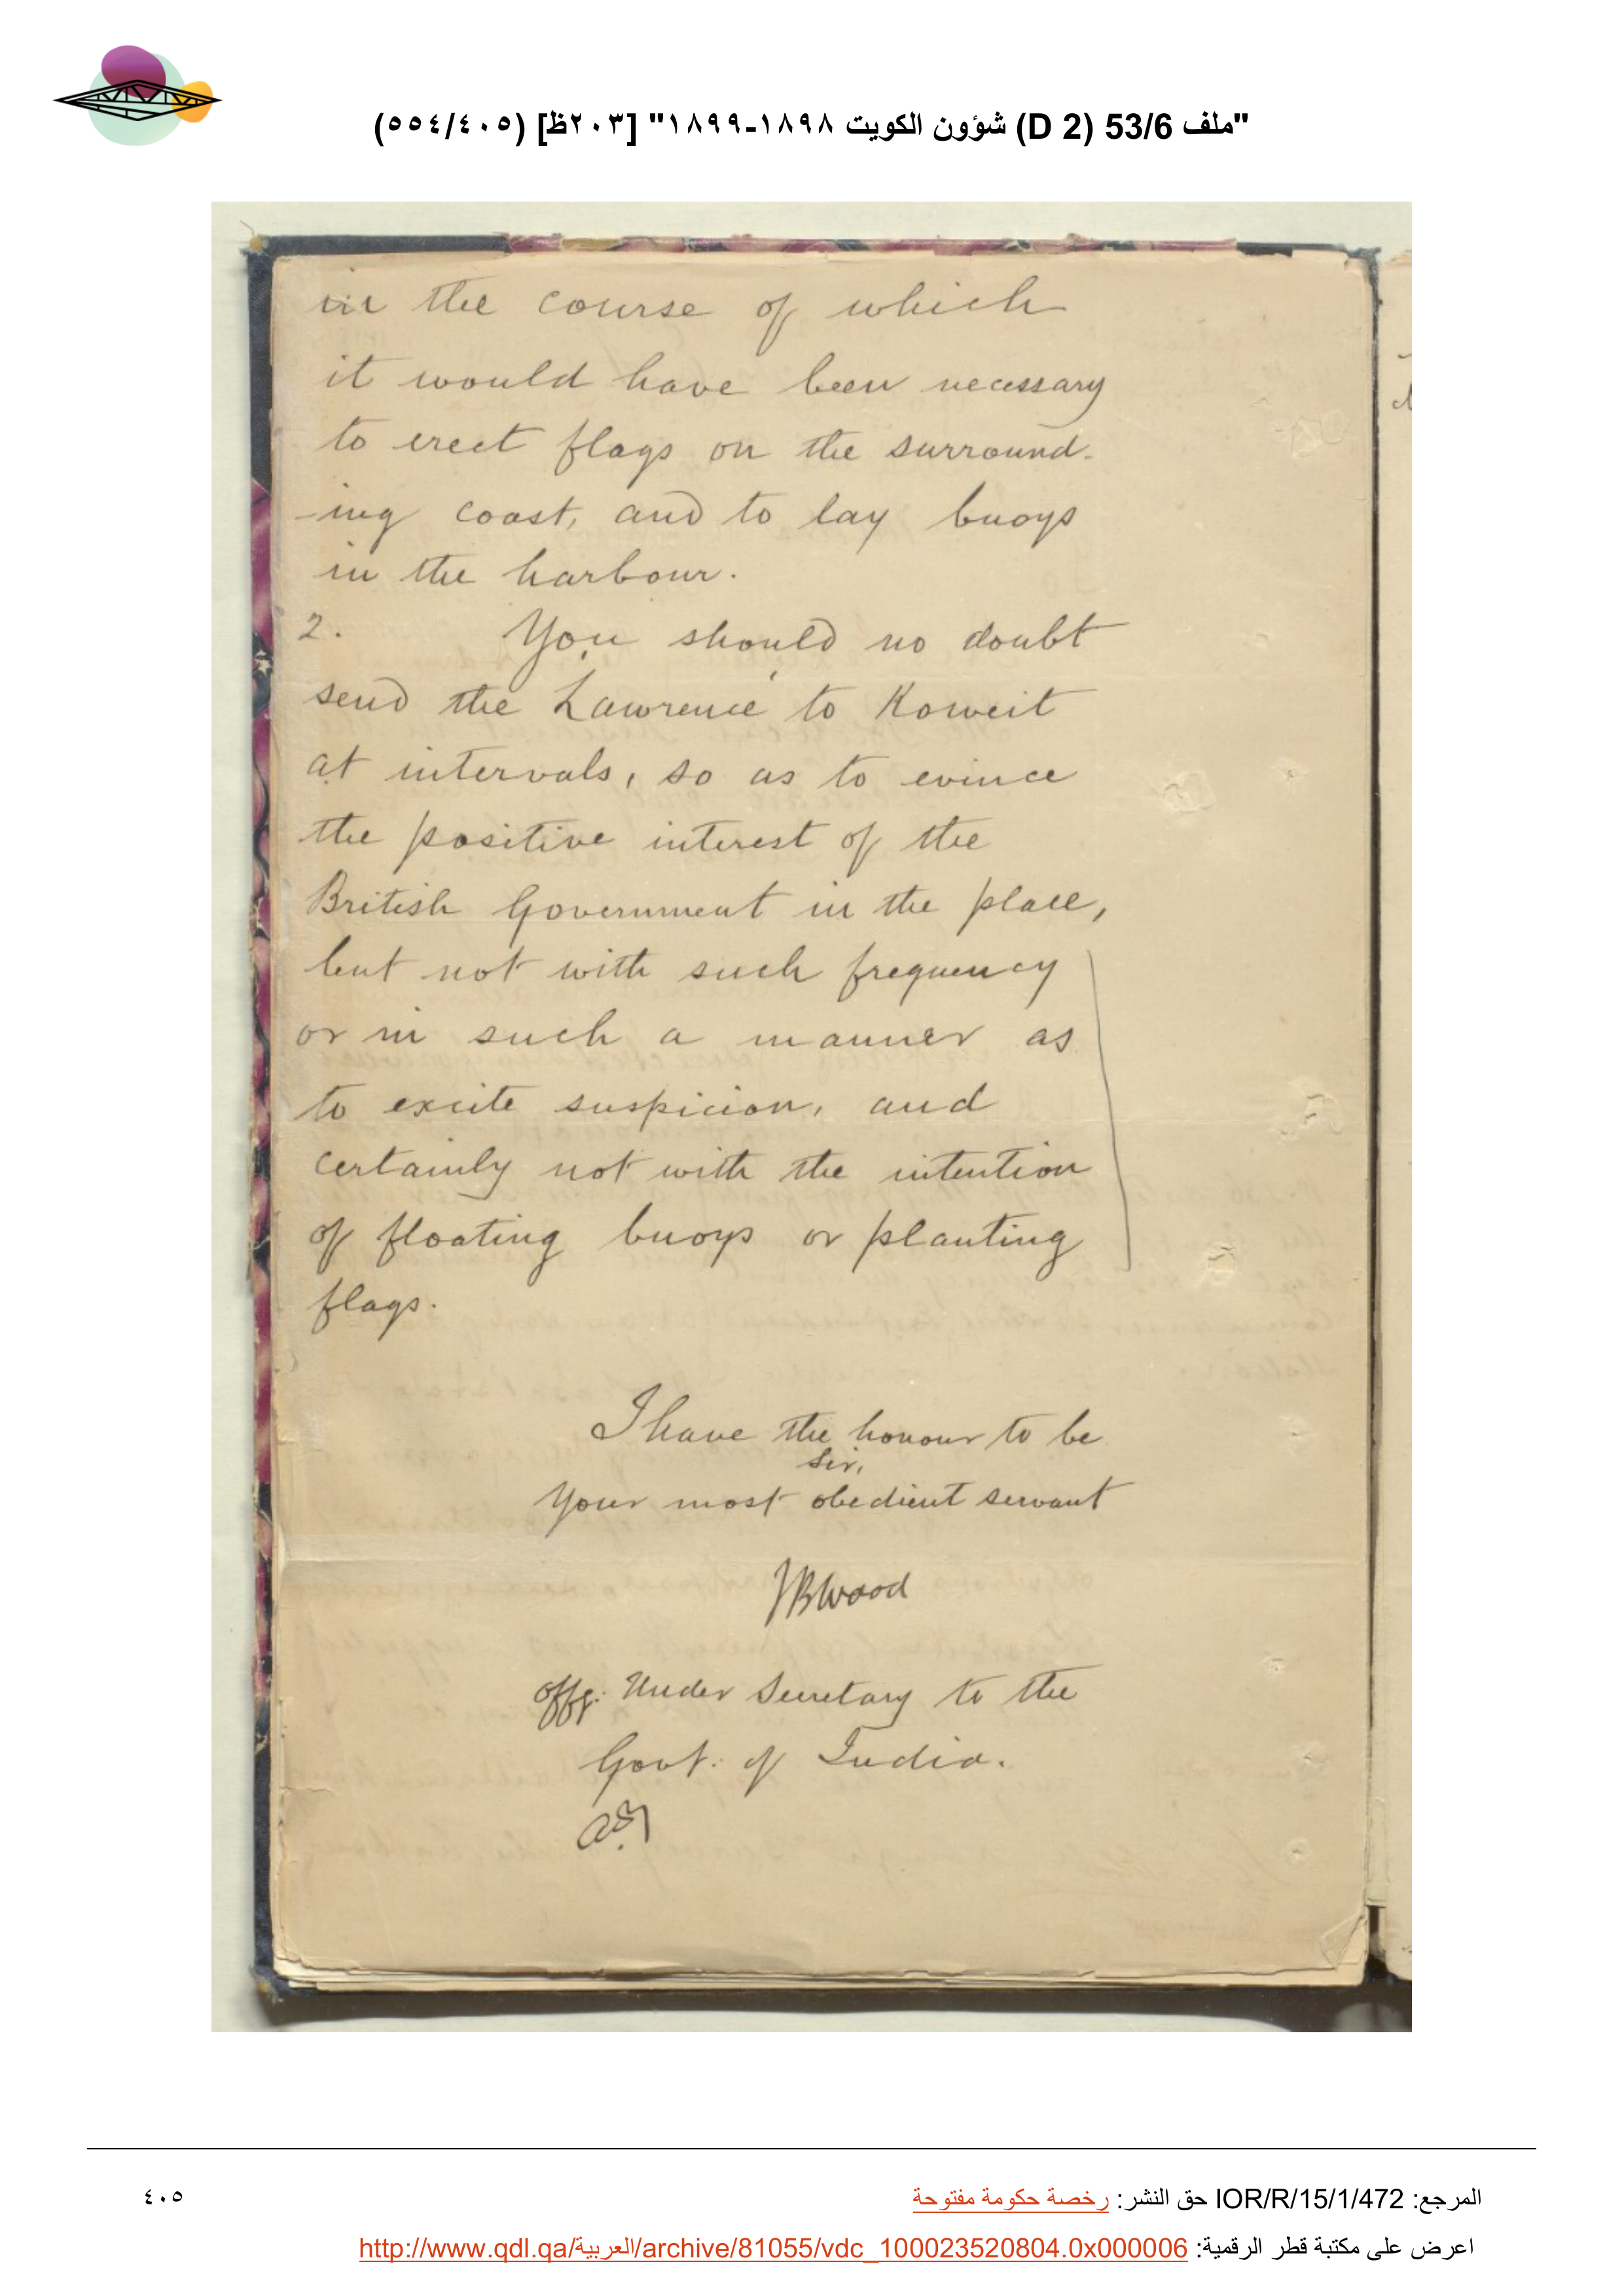 "ملف 53/6 (D 2) شؤون الكويت ١٨٩٨-١٨٩٩" [٢٠٣ظ] (٥٥٤/٤٠٥)
in the course of which
it would have been necessary
to erect flags on the surround-
-ing coast, and to lay buoys
in the harbour.
2. You should no doubt
send the 'Lawrence' to Koweit
at intervals, so as to evince
the positive interest of the
British Government in the place,
but not with such frequency
or in such a manner as
to excite suspicion, and
certainly not with the intention
of floating buoys or planting
flags.
I have the honour to be
Sir,
Your most obedient servant
JBWood
Offg: Under Secretary to the
Govt: of India.
المرجع: IOR/R/15/1/472 حق النشر: رخصة حكومة مفتوحة
٤٠٥
اعرض على مكتبة قطر الرقمية: http://www.qdl.qa/العربية/archive/81055/vdc_100023520804.0x000006